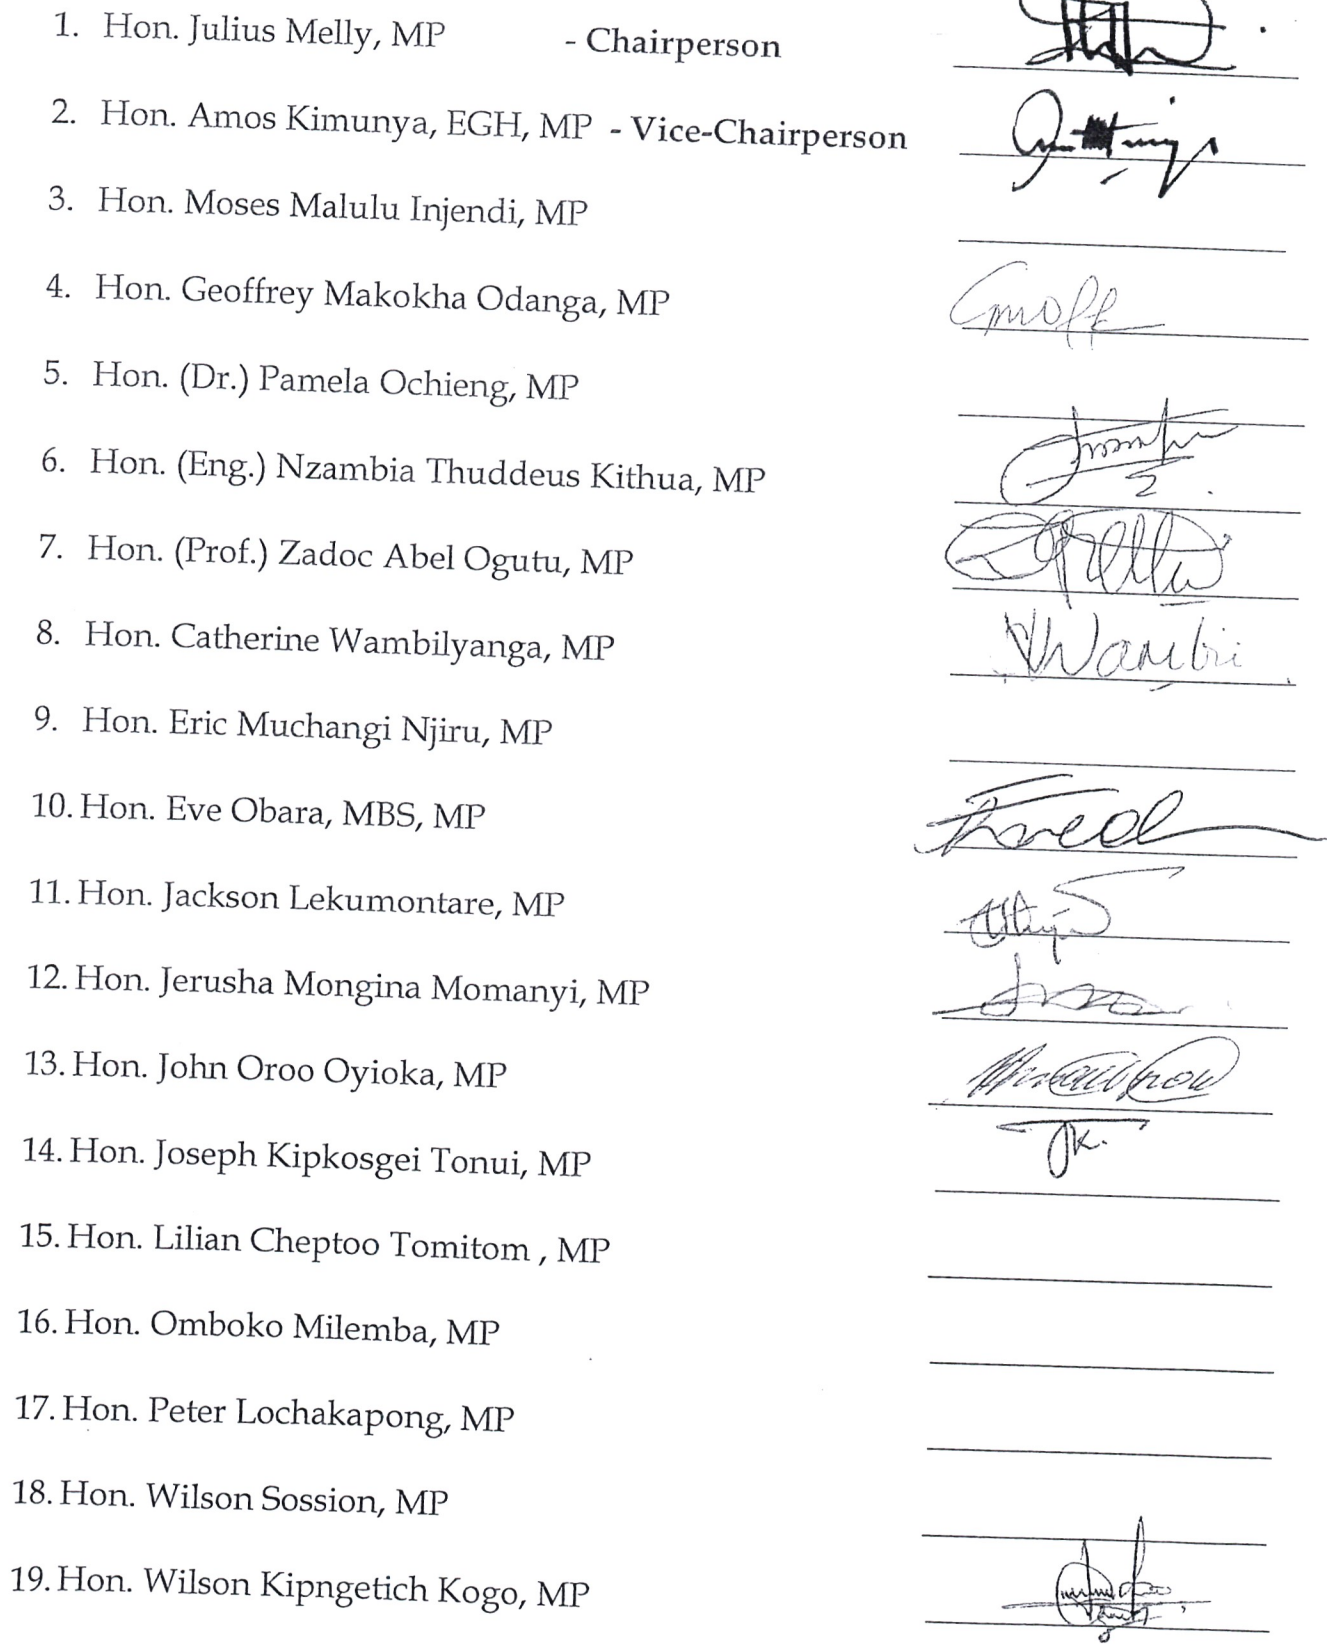 1. Hon. Julius Melly, MP - Chairperson
2. Hon. Amos Kimunya, EGH, MP - Vice-Chairperson
3. Hon. Moses Malulu Injendi, MP
4. Hon. Geoffrey Makokha Odanga, MP
5. Hon. (Dr.) Pamela Ochieng, MP
6. Hon. (Eng.) Nzambia Thuddeus Kithua, MP
7. Hon. (Prof.) Zadoc Abel Ogutu, MP
8. Hon. Catherine Wambilyanga, MP
9. Hon. Eric Muchangi Njiru, MP
10. Hon. Eve Obara, MBS, MP
11. Hon. Jackson Lekumontare, MP
12. Hon. Jerusha Mongina Momanyi, MP
13. Hon. John Oroo Oyioka, MP
14. Hon. Joseph Kipkosgei Tonui, MP
15. Hon. Lilian Cheptoo Tomitom , MP
16. Hon. Omboko Milemba, MP
17. Hon. Peter Lochakapong, MP
18. Hon. Wilson Sossion, MP
19. Hon. Wilson Kipngetich Kogo, MP